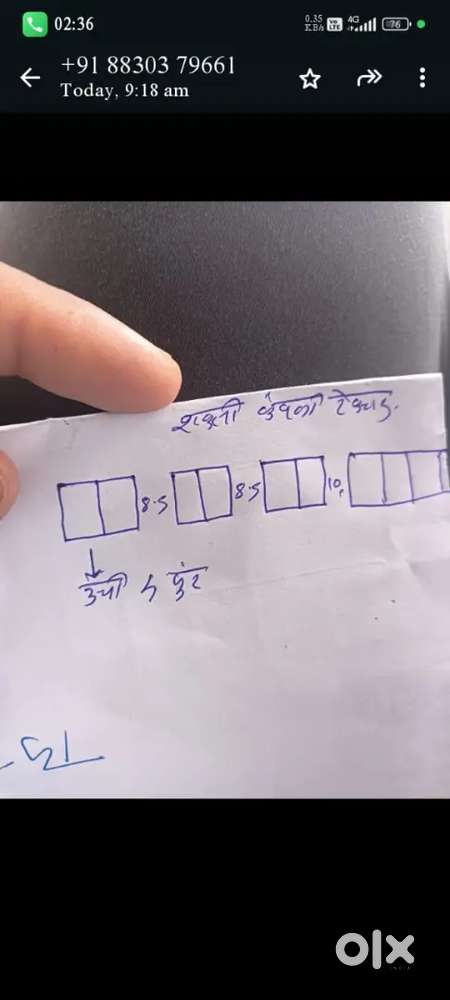 02:36
0.35 KB/s Vo LTE 4G 76
+91 88303 79661
Today, 9:18 am
शक्ती कंपनी
8.5 8.5 10
उंची 5 फुट
olx
INDIA